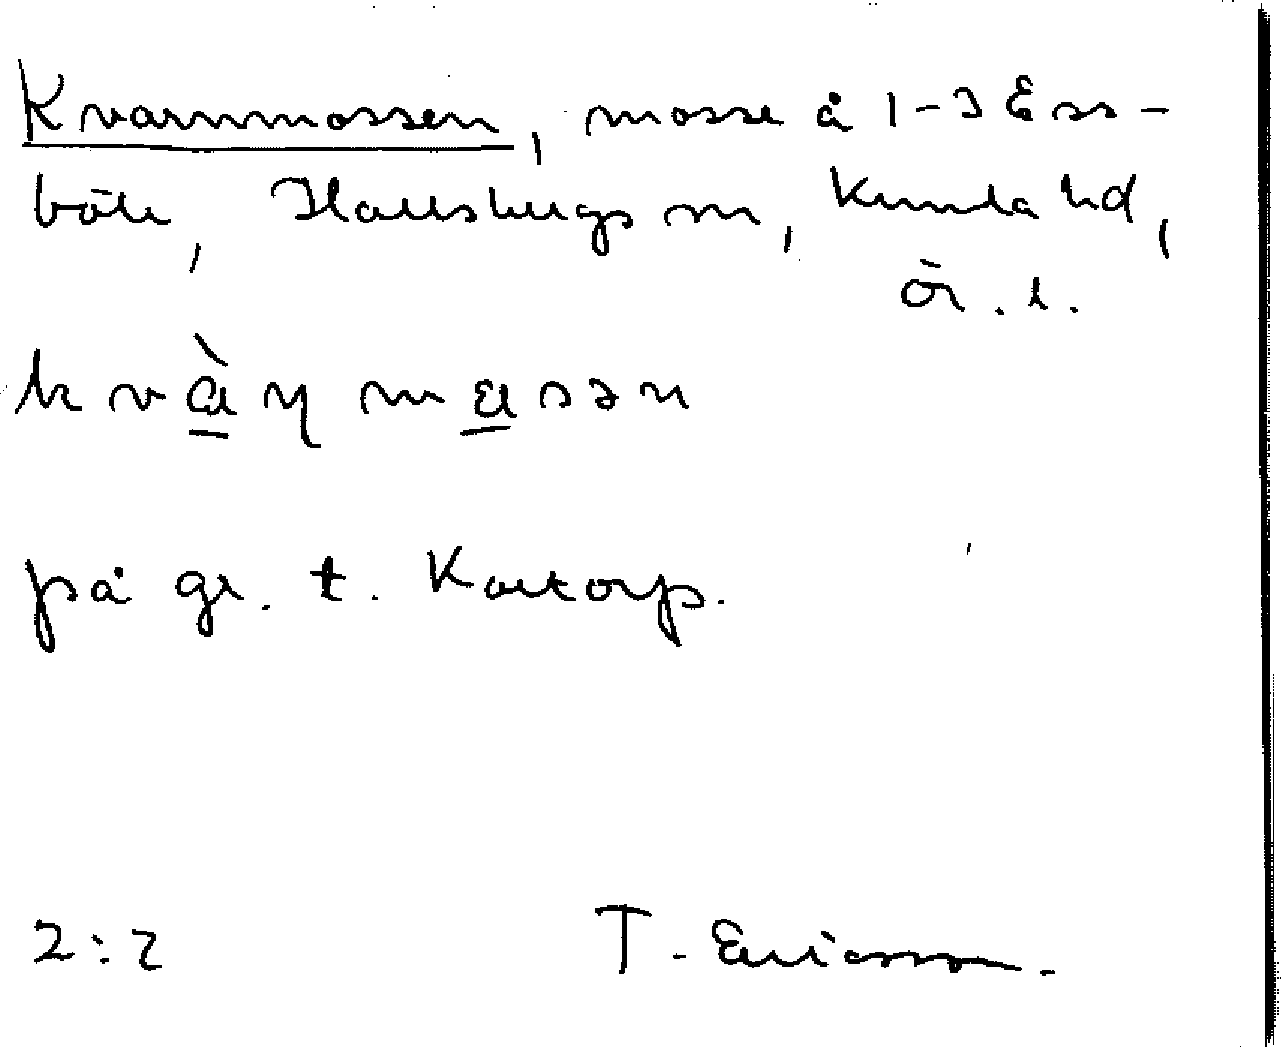 Kvarnmossen, mosse å 1-3 Ess-
böle, Hallsbergs sn, Kumla hd,
Ör. l.
på gr. t. Kartorp.
2:2 T. Ericsson.